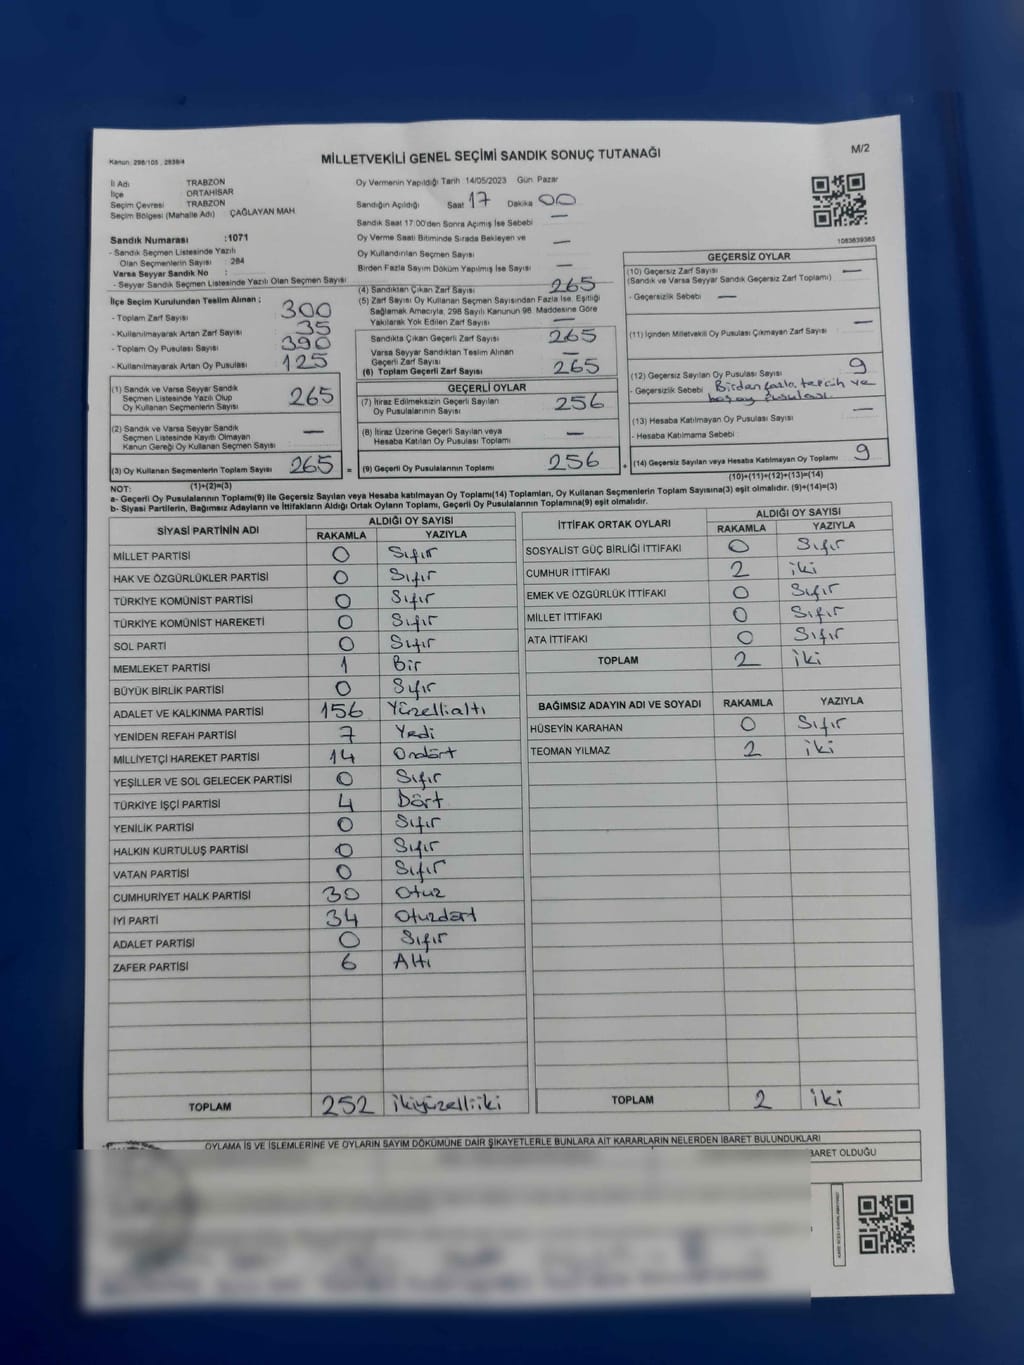 Kanun: 298/105 , 2839/4
MİLLETVEKİLİ GENEL SEÇİMİ SANDIK SONUÇ TUTANAĞI
M/2
İl Adı TRABZON
İlçe ORTAHİSAR
Seçim Çevresi TRABZON
Seçim Bölgesi (Mahalle Adı) ÇAĞLAYAN MAH.
Oy Vermenin Yapıldığı Tarih 14/05/2023 Gün Pazar
Sandığın Açıldığı Saat 17 Dakika 00
Sandık Saat 17:00'den Sonra Açılmış İse Sebebi —
Oy Verme Saati Bitiminde Sırada Bekleyen ve
Oy Kullandırılan Seçmen Sayısı —
Birden Fazla Sayım Döküm Yapılmış İse Sayısı —
1083639363
Sandık Numarası :1071
- Sandık Seçmen Listesinde Yazılı
Olan Seçmenlerin Sayısı : 284
Varsa Seyyar Sandık No :
- Seyyar Sandık Seçmen Listesinde Yazılı Olan Seçmen Sayısı
İlçe Seçim Kurulundan Teslim Alınan ;
- Toplam Zarf Sayısı 300
- Kullanılmayarak Artan Zarf Sayısı 35
- Toplam Oy Pusulası Sayısı 390
- Kullanılmayarak Artan Oy Pusulası 125
(1) Sandık ve Varsa Seyyar Sandık
Seçmen Listesinde Yazılı Olup
Oy Kullanan Seçmenlerin Sayısı 265
(2) Sandık ve Varsa Seyyar Sandık
Seçmen Listesinde Kayıtlı Olmayan
Kanun Gereği Oy Kullanan Seçmen Sayısı —
(3) Oy Kullanan Seçmenlerin Toplam Sayısı 265 =
(1)+(2)=(3)
(4) Sandıktan Çıkan Zarf Sayısı 265
(5) Zarf Sayısı Oy Kullanan Seçmen Sayısından Fazla İse, Eşitliği
Sağlamak Amacıyla, 298 Sayılı Kanunun 98. Maddesine Göre
Yakılarak Yok Edilen Zarf Sayısı —
Sandıkta Çıkan Geçerli Zarf Sayısı 265
Varsa Seyyar Sandıktan Teslim Alınan
Geçerli Zarf Sayısı —
(6) Toplam Geçerli Zarf Sayısı 265
GEÇERLİ OYLAR
(7) İtiraz Edilmeksizin Geçerli Sayılan
Oy Pusulalarının Sayısı 256
(8) İtiraz Üzerine Geçerli Sayılan veya
Hesaba Katılan Oy Pusulası Toplamı —
(9) Geçerli Oy Pusulalarının Toplamı 256 +
GEÇERSİZ OYLAR
(10) Geçersiz Zarf Sayısı —
(Sandık ve Varsa Seyyar Sandık Geçersiz Zarf Toplamı)
- Geçersizlik Sebebi —
(11) İçinden Milletvekili Oy Pusulası Çıkmayan Zarf Sayısı —
(12) Geçersiz Sayılan Oy Pusulası Sayısı 9
- Geçersizlik Sebebi Birden fazla tercih ve
boş oy pusulası.
(13) Hesaba Katılmayan Oy Pusulası Sayısı —
- Hesaba Katılmama Sebebi
(14) Geçersiz Sayılan veya Hesaba Katılmayan Oy Toplamı 9
(10)+(11)+(12)+(13)=(14)
NOT:
a- Geçerli Oy Pusulalarının Toplamı(9) ile Geçersiz Sayılan veya Hesaba katılmayan Oy Toplamı(14) Toplamları, Oy Kullanan Seçmenlerin Toplam Sayısına(3) eşit olmalıdır. (9)+(14)=(3)
b- Siyasi Partilerin, Bağımsız Adayların ve İttifakların Aldığı Ortak Oyların Toplamı, Geçerli Oy Pusulalarının Toplamına(9) eşit olmalıdır.
SİYASİ PARTİNİN ADI ALDIĞI OY SAYISI
RAKAMLA YAZIYLA
MİLLET PARTİSİ 0 Sıfır
HAK VE ÖZGÜRLÜKLER PARTİSİ 0 Sıfır
TÜRKİYE KOMÜNİST PARTİSİ 0 Sıfır
TÜRKİYE KOMÜNİST HAREKETİ 0 Sıfır
SOL PARTİ 0 Sıfır
MEMLEKET PARTİSİ 1 Bir
BÜYÜK BİRLİK PARTİSİ 0 Sıfır
ADALET VE KALKINMA PARTİSİ 156 Yüzellialtı
YENİDEN REFAH PARTİSİ 7 Yedi
MİLLİYETÇİ HAREKET PARTİSİ 14 Ondört
YEŞİLLER VE SOL GELECEK PARTİSİ 0 Sıfır
TÜRKİYE İŞÇİ PARTİSİ 4 Dört
YENİLİK PARTİSİ 0 Sıfır
HALKIN KURTULUŞ PARTİSİ 0 Sıfır
VATAN PARTİSİ 0 Sıfır
CUMHURİYET HALK PARTİSİ 30 Otuz
İYİ PARTİ 34 Otuzdört
ADALET PARTİSİ 0 Sıfır
ZAFER PARTİSİ 6 Altı
TOPLAM 252 ikiyüzelliiki
İTTİFAK ORTAK OYLARI ALDIĞI OY SAYISI
RAKAMLA YAZIYLA
SOSYALİST GÜÇ BİRLİĞİ İTTİFAKI 0 Sıfır
CUMHUR İTTİFAKI 2 iki
EMEK VE ÖZGÜRLÜK İTTİFAKI 0 Sıfır
MİLLET İTTİFAKI 0 Sıfır
ATA İTTİFAKI 0 Sıfır
TOPLAM 2 iki
BAĞIMSIZ ADAYIN ADI VE SOYADI RAKAMLA YAZIYLA
HÜSEYİN KARAHAN 0 Sıfır
TEOMAN YILMAZ 2 iki
TOPLAM 2 iki
OYLAMA İŞ VE İŞLEMLERİNE VE OYLARIN SAYIM DÖKÜMÜNE DAİR ŞİKAYETLERLE BUNLARA AİT KARARLARIN NELERDEN İBARET BULUNDUKLARI
BARET OLDUĞU